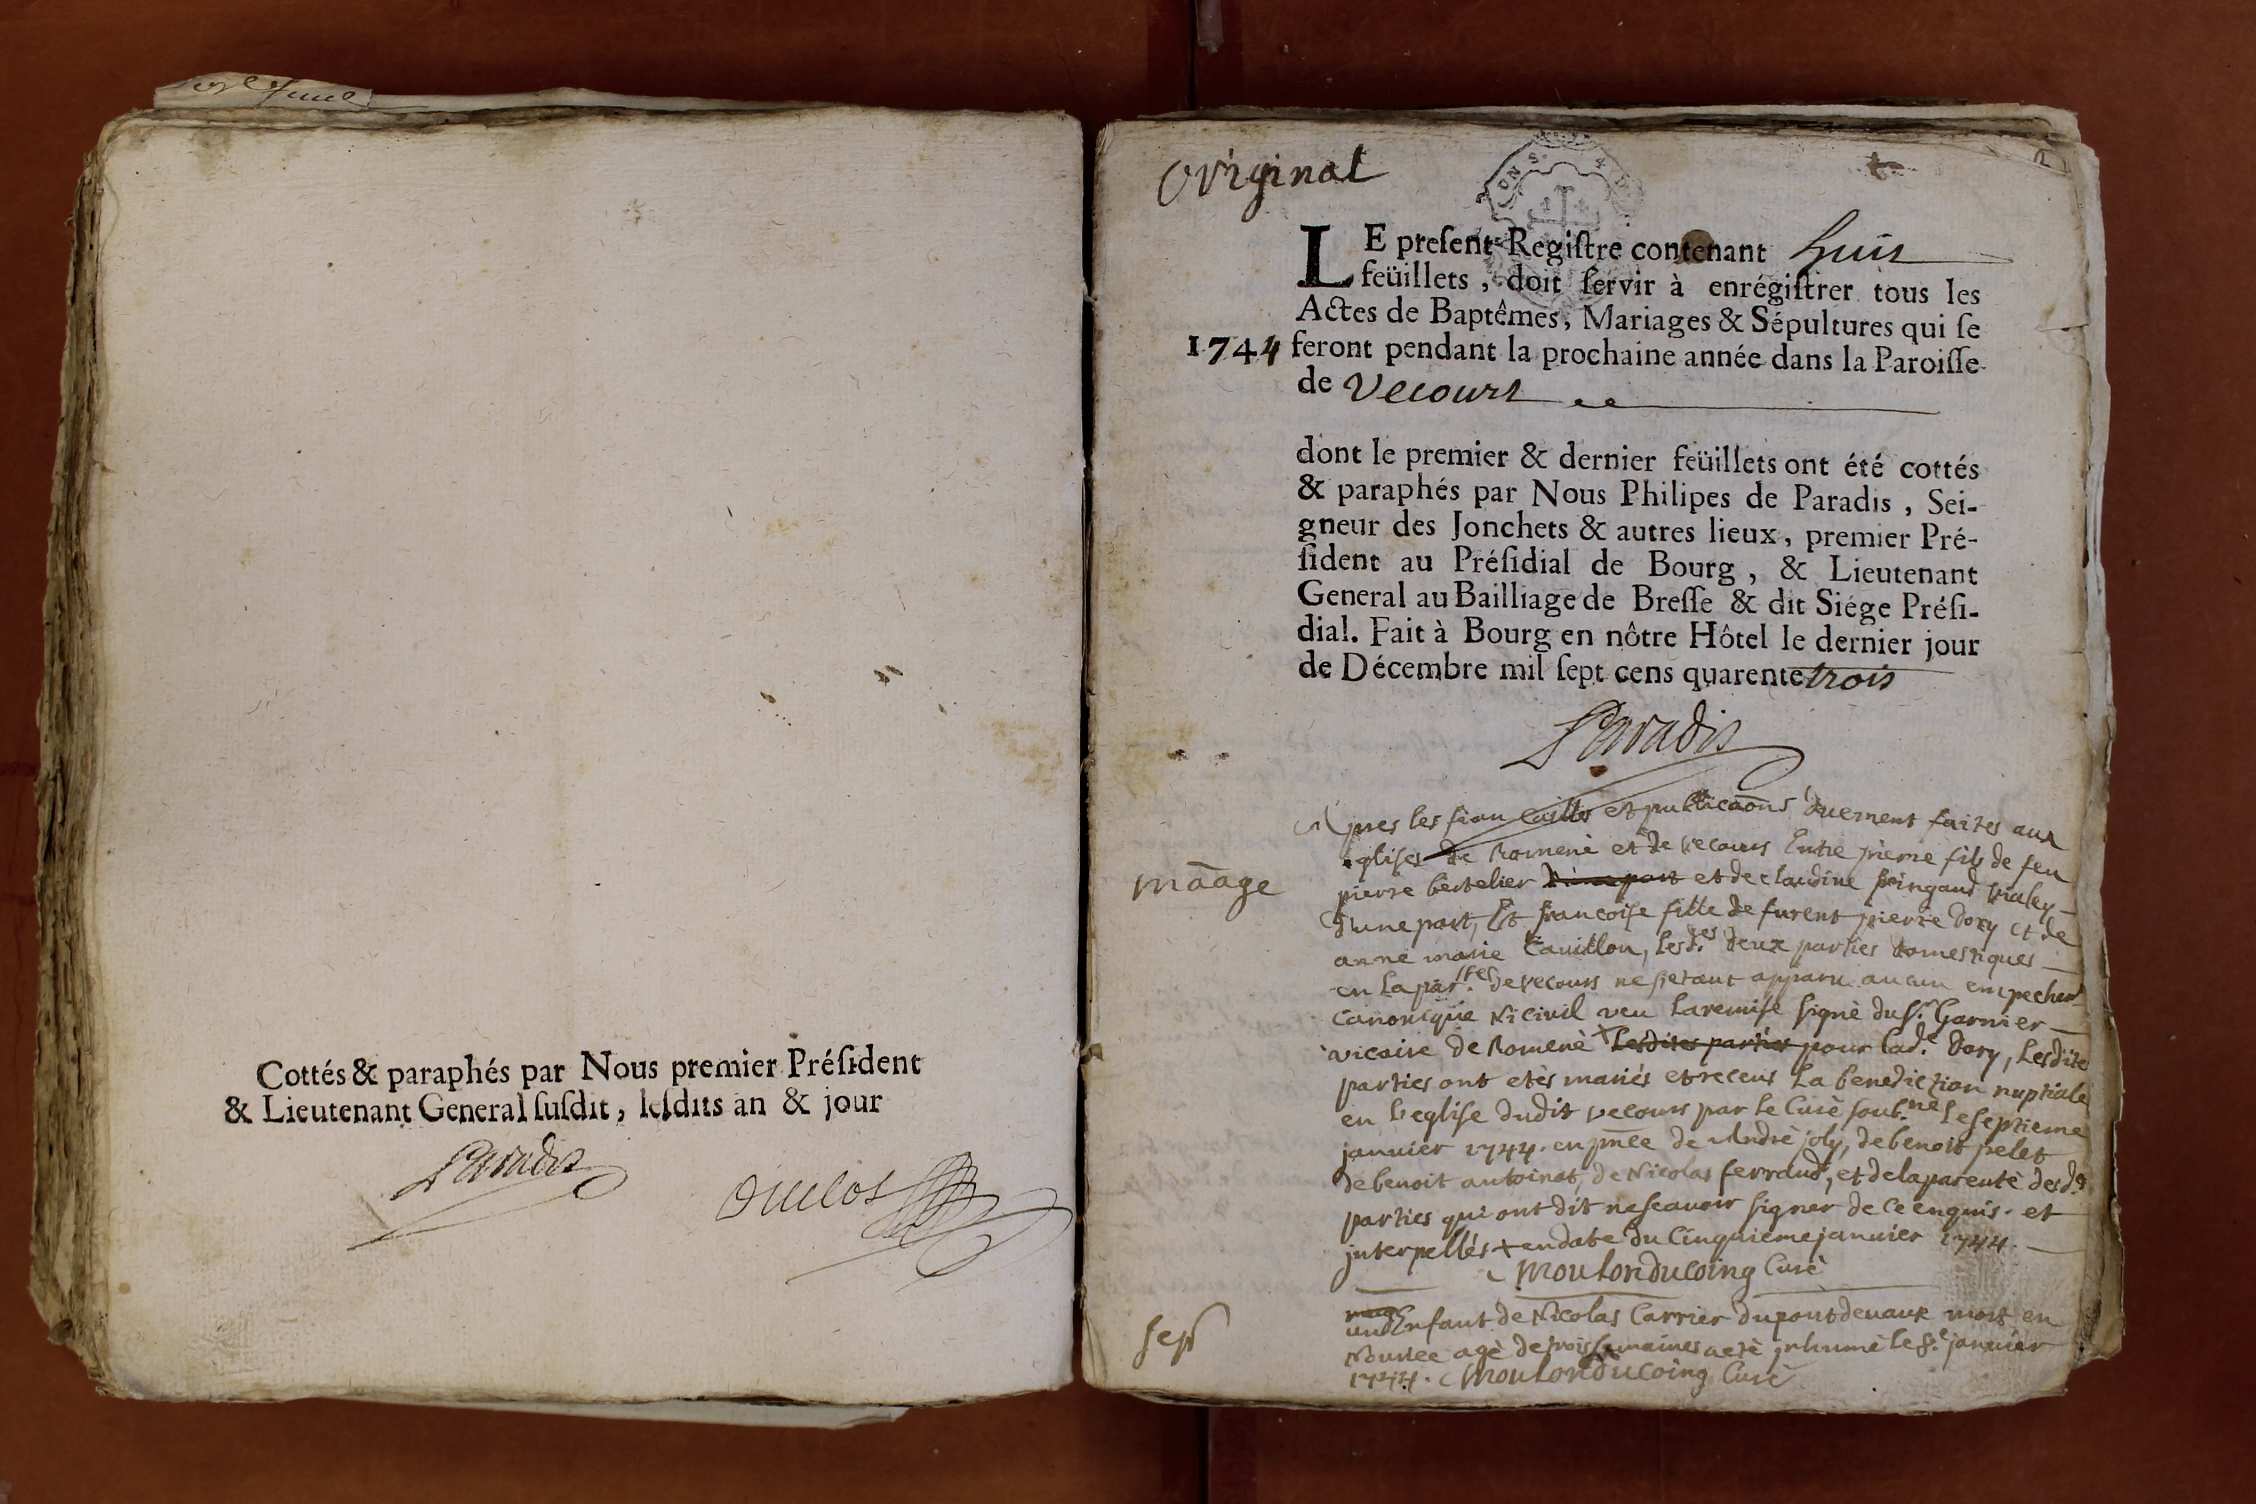 Cottés & paraphés par Nous premier Préſident
& Lieutenant General ſuſdit, leſdits an & jour
Paradis
Duclos
Original
2
LE preſent Regiſtre contenant huit
feüillets, doit ſervir à enrégiſtrer tous les
Actes de Baptêmes, Mariages & Sépultures qui ſe
1744 feront pendant la prochaine année dans la Paroiſſe
de Vecourt
dont le premier & dernier feüillets ont été cottés
& paraphés par Nous Philipes de Paradis, Sei-
gneur des Jonchets & autres lieux, premier Pré-
ſident au Préſidial de Bourg, & Lieutenant
General au Bailliage de Breſſe & dit Siége Préſi-
dial. Fait à Bourg en nôtre Hôtel le dernier jour
de Décembre mil ſept cens quarente trois
Paradis
Apres les fiancailles et publicaõns duement faites aux
eglises de Romenè et de vecours Entre pierre fils de feu
mãage
pierre bertelier et de claudine
d'une part, Et francoise fille de furent pierre Dory et de
anne marie Cauillon, lesd.es deux parties domestiques
en la par. de vecours ne s'etant apparu aucun empecher
canonique Ni civil veu la remise signè du S.r Garnier
vicaire de Romenè + Lesdites parties pour lad.e Dory, Lesdite
parties ont etès mariés et receus La benediction nuptiale
en l'eglise dudit vecours par le Curè soub.né le septieme
januier 1744. en pñce de Andrè joly, de benoit pelet
de benoit antoinat, de Nicolas ferraud, et de la parentè des d.s
parties qui ont dit ne scauoir signer de ce enquis. et
interpellés + en date du Cinquieme januier 1744.
Moulon Ducoing Curè
sep
un Enfant de Nicolas Carrier du pontdevaux mort en
Nourice agè de trois semaines a etè inhumè le 8.e januier
1744. Moulon Ducoing Curè